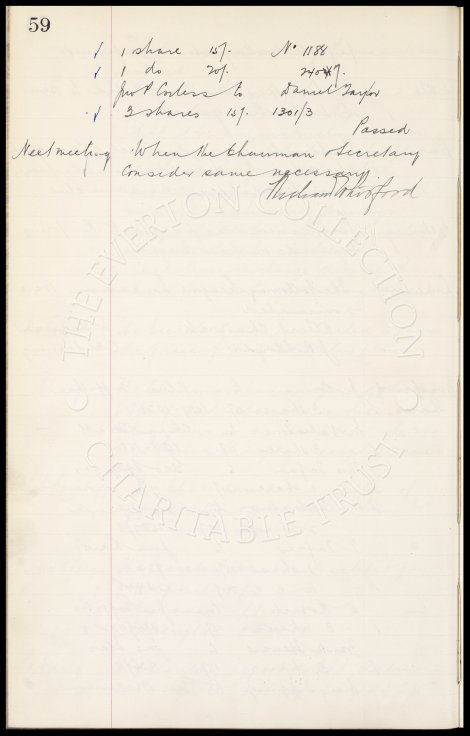 59
1 share 15/- No 1188
1 do 20/-
Jno P Corless to Daniel Taylor
3 shares 15/- 1301/3
Passed
Next meeting When the Chairman & Secretary
consider same necessary.
THE EVERTON COLLECTION
CHARITABLE TRUST